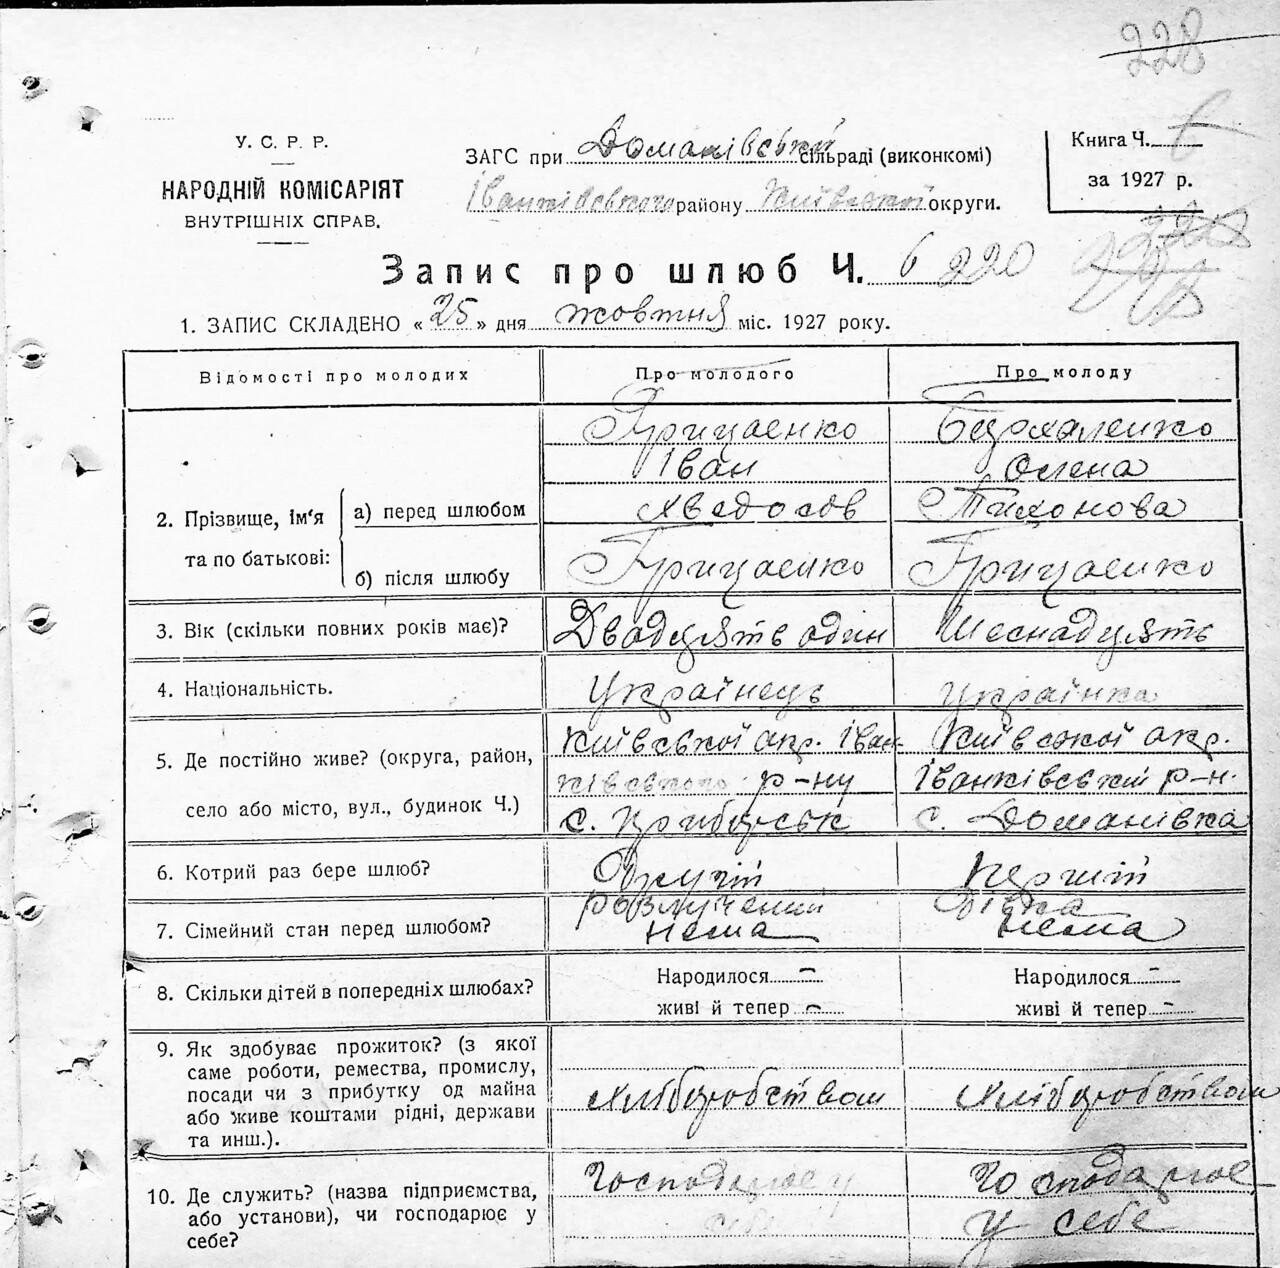 228
У. С. Р. Р.
НАРОДНІЙ КОМІСАРІЯТ
ВНУТРІШНІХ СПРАВ.
ЗАГС при Доманівський сільраді (виконкомі)
Іванківського району Київської округи.
Книга Ч. 6
за 1927 р.
Запис про шлюб Ч. 6 220
1. ЗАПИС СКЛАДЕНО « 25 » дня жовтня міс. 1927 року.
Відомості про молодих Про молодого Про молоду
2. Прізвище, ім'я та по батькові:
а) перед шлюбом
Грицаенко
Іван
Хведосов
Олена
Тихонова
б) після шлюбу
Грицаенко Грицаенко
3. Вік (скільки повних років має)? Двадцять один Шеснадцять
4. Національність. Українець Українка
5. Де постійно живе? (округа, район, село або місто, вул., будинок Ч.)
Київської окр. Іван-
ківського р-ну
с. Прибурськ
Київської окр.
Іванківський р-н.
с. Доманівка
6. Котрий раз бере шлюб? Другий Перший
7. Сімейний стан перед шлюбом?
розлучений
нема
Дівка
нема
8. Скільки дітей в попередніх шлюбах?
Народилося – Народилося –
живі й тепер – живі й тепер –
9. Як здобуває прожиток? (з якої
саме роботи, ремества, промислу,
посади чи з прибутку од майна
або живе коштами рідні, держави
та инш.).
Хліборобством Хліборобством
10. Де служить? (назва підприємства,
або установи), чи господарює у
себе?
Господарює у
себе
Господарює
у себе